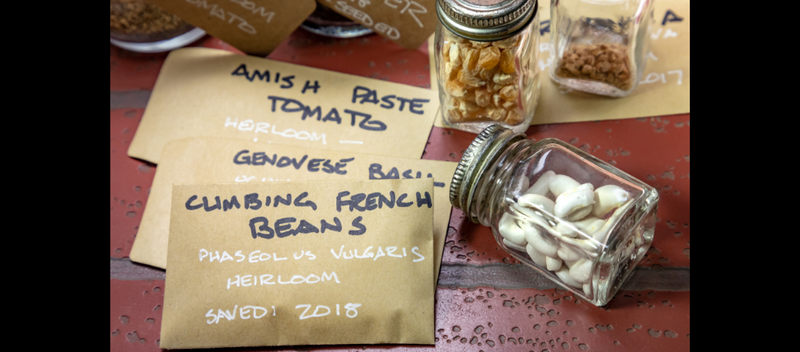 TOMATO
SEEDED
AMISH PASTE
TOMATO
HEIRLOOM —
GENOVESE BASIL
CLIMBING FRENCH
BEANS
PHASEOLUS VULGARIS
HEIRLOOM
SAVED: 2018
2017